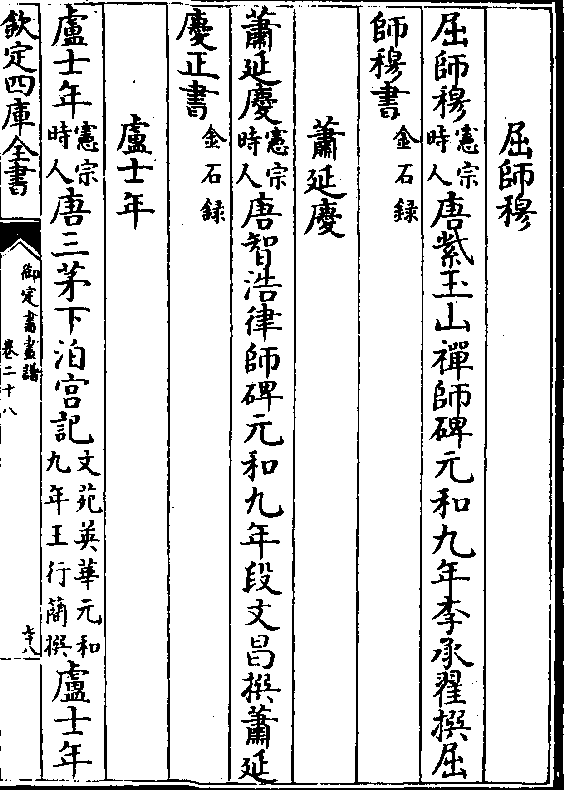 屈師穆
屈師穆憲宗時人唐紫玉山禪師碑元和九年李承翟撰屈
師穆書金石録
蕭延慶
蕭延慶憲宗時人唐智浩律師碑元和九年段文昌撰蕭延
慶正書金石録
盧士年
盧士年憲宗時人唐三茅下泊宮記文苑英華元和九年王行蕳撰盧士年
欽定四庫全書
御定書畫譜
卷二十八